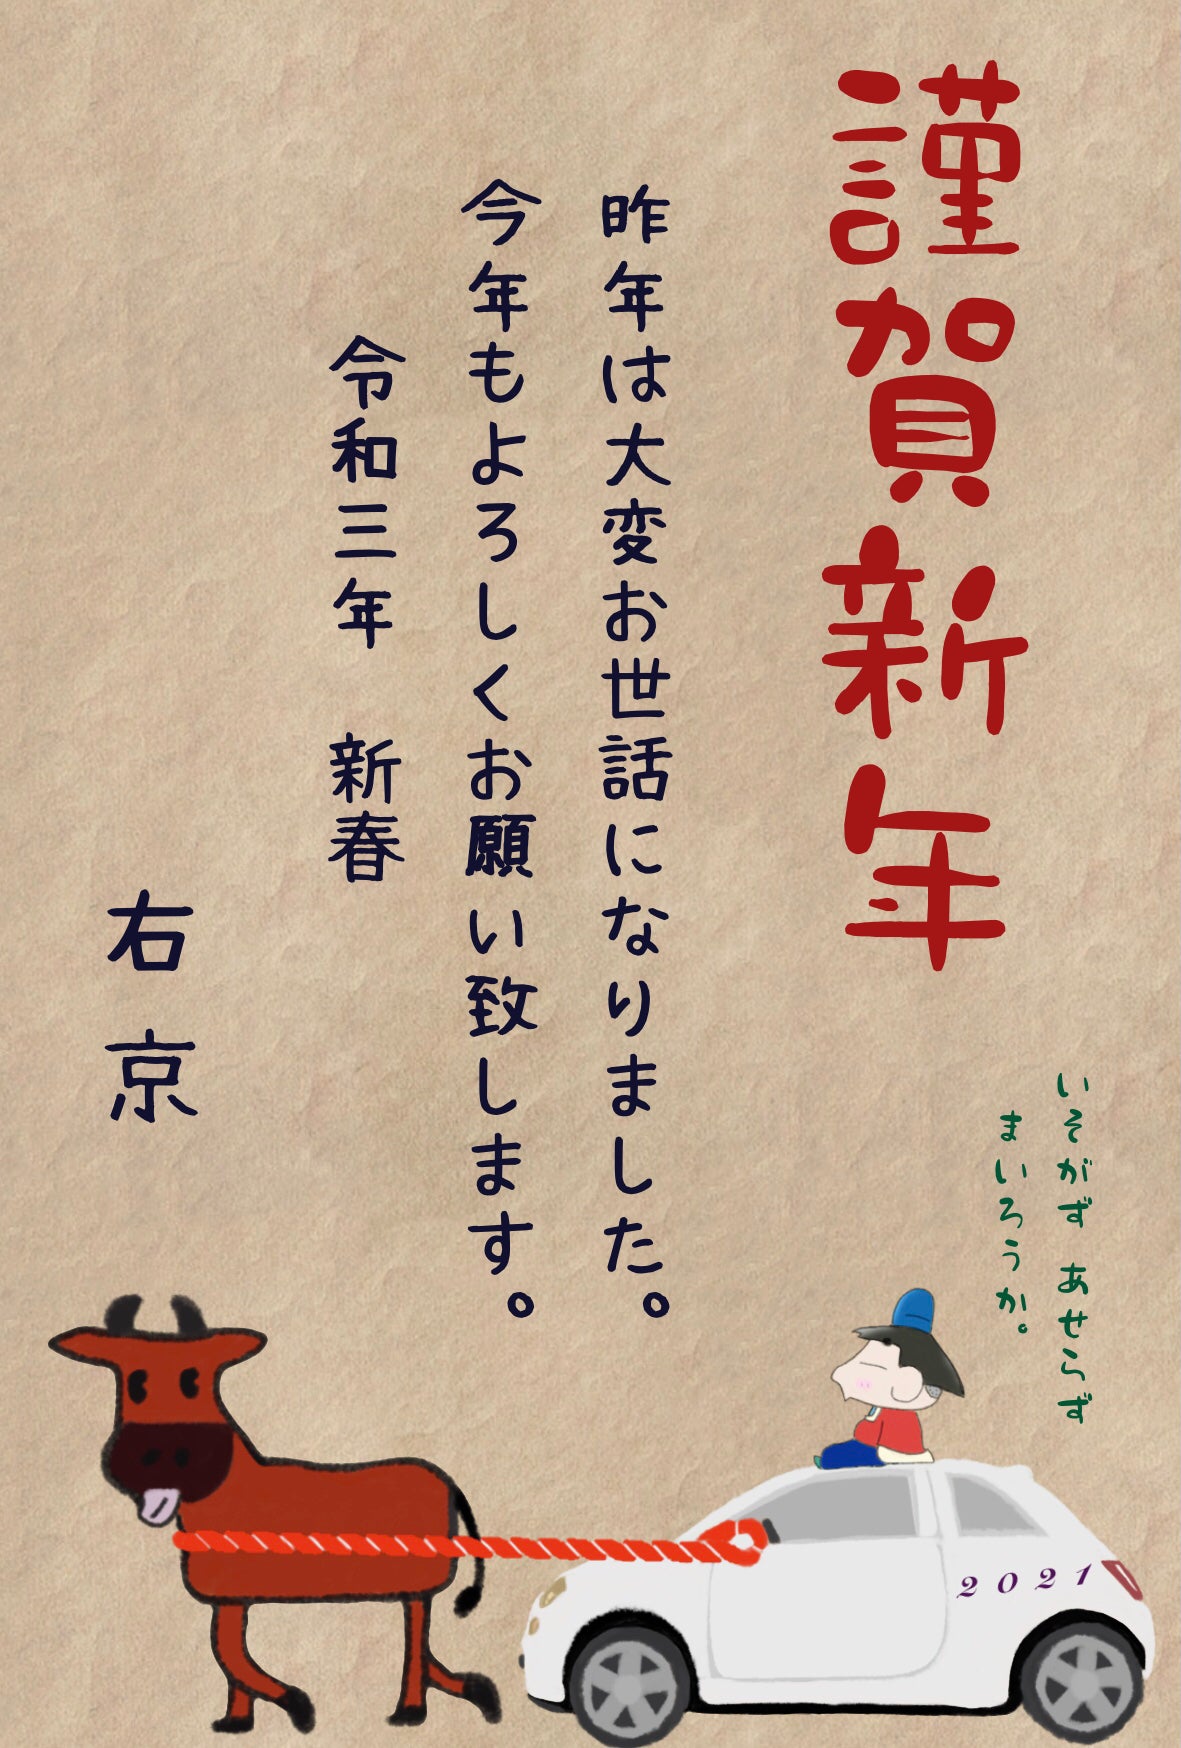 謹賀新年
昨年は大変お世話になりました。
今年もよろしくお願い致します。
令和三年　新春
右京
いそがず あせらず
まいろうか。
2021